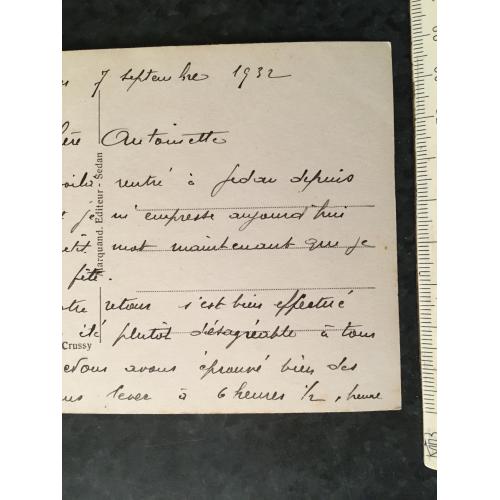 7 septembre 1932
Antoinette
rentré à Sedan depuis
je m'empresse aujourd'hui
mot maintenant que je
fête.
retour s'est bien effectué
été plutôt désagréable à tous
avons éprouvé bien des
lever à 6 heures 1/2, heure
Marquand. Editeur - Sedan
Crussy